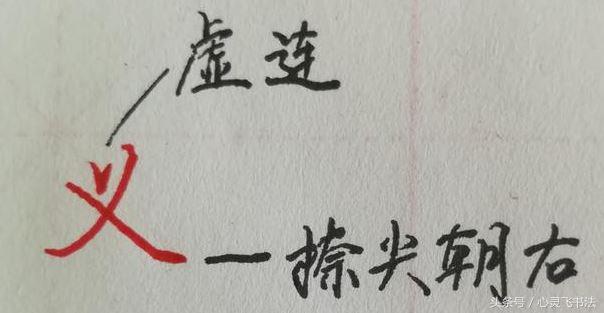 虚连
义
一捺尖朝右
头条号/心灵飞书法